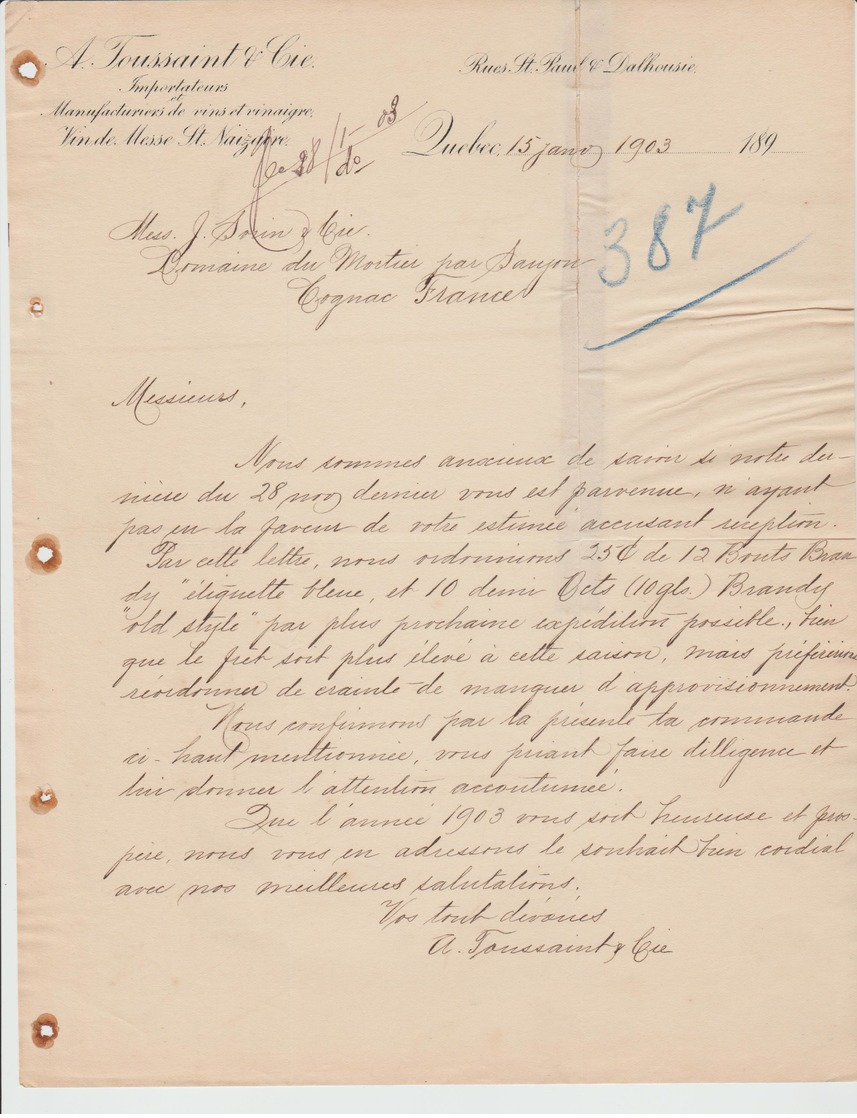 A. Toussaint & Cie.
Importateurs
et
Manufacturiers de vins et vinaigre.
Vin de Messe St. Nazaire.
Rues St. Paul & Dalhousie.
Quebec, 15 janv 1903 189
28/1-03
do
387
Mess. J. Sorin & Cie.
Domaine du Mortier par Saujon
Cognac France
Messieurs,
Nous sommes anxieux de savoir si notre der-
nière du 28 nov dernier vous est parvenue, n'ayant
pas eu la faveur de votre estimée accusant réception.
Par cette lettre, nous ordonnions 25 C de 12 Bouts Bran
dy "étiquette bleue, et 10 demi Octs (10 gls.) Brandy
"old style" par plus prochaine expédition possible, bien
que le fret soit plus élevé à cette saison, mais préférions
réordonner de crainte de manquer d'approvisionnement.
Nous confirmons par la présente la commande
ci-haut mentionnée, vous priant faire dilligence et
lui donner l'attention accoutumée.
Que l'année 1903 vous soit heureuse et pros-
père, nous vous en adressons le souhait bien cordial
avec nos meilleures salutations.
Vos tout dévoués
A. Toussaint & Cie